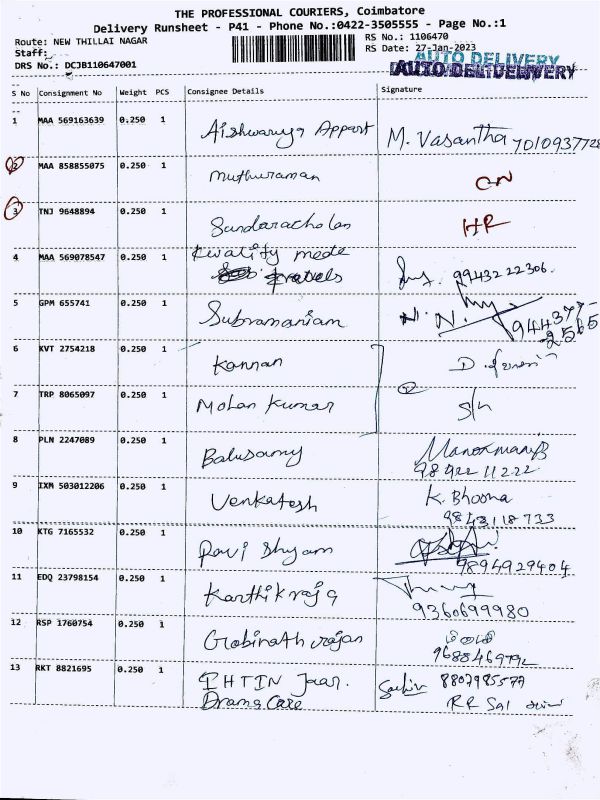 THE PROFESSIONAL COURIERS, Coimbatore
Delivery Runsheet - P41 - Phone No.:0422-3505555 - Page No.:1
Route: NEW THILLAI NAGAR RS No.: 1106470
Staff: RS Date: 27-Jan-2023
AUTO DELIVERY
AUTO DELIVERY
DRS No.: DCJB110647001
S No Consignment No Weight PCS Consignee Details Signature
1 MAA 569163639 0.250 1 Aishwarya Appart M. Vasantha 7010937728
2 MAA 858855075 0.250 1 Muthuraman
3 TNJ 9648894 0.250 1 Sundaracholan HR
4 MAA 569078547 0.250 1 Kwality mede 9943222306.
5 GPM 655741 0.250 1 Subramaniam N. N.
944377-
2565
6 KVT 2754218 0.250 1 Kannan D.
7 TRP 8065097 0.250 1 Mohan Kumar
8 PLN 2247089 0.250 1 Balusamy
98922 11222
9 IXM 503012206 0.250 1 Venkatesh K. Bhooma
9843118733
10 KTG 7165532 0.250 1 Ravi Shyam
9894929404
11 EDQ 23798154 0.250 1 Karthik raja
9360699980
12 RSP 1760754 0.250 1 Gobinath rajan
9688469792
13 RKT 8821695 0.250 1 8807985577
Care RR Sai